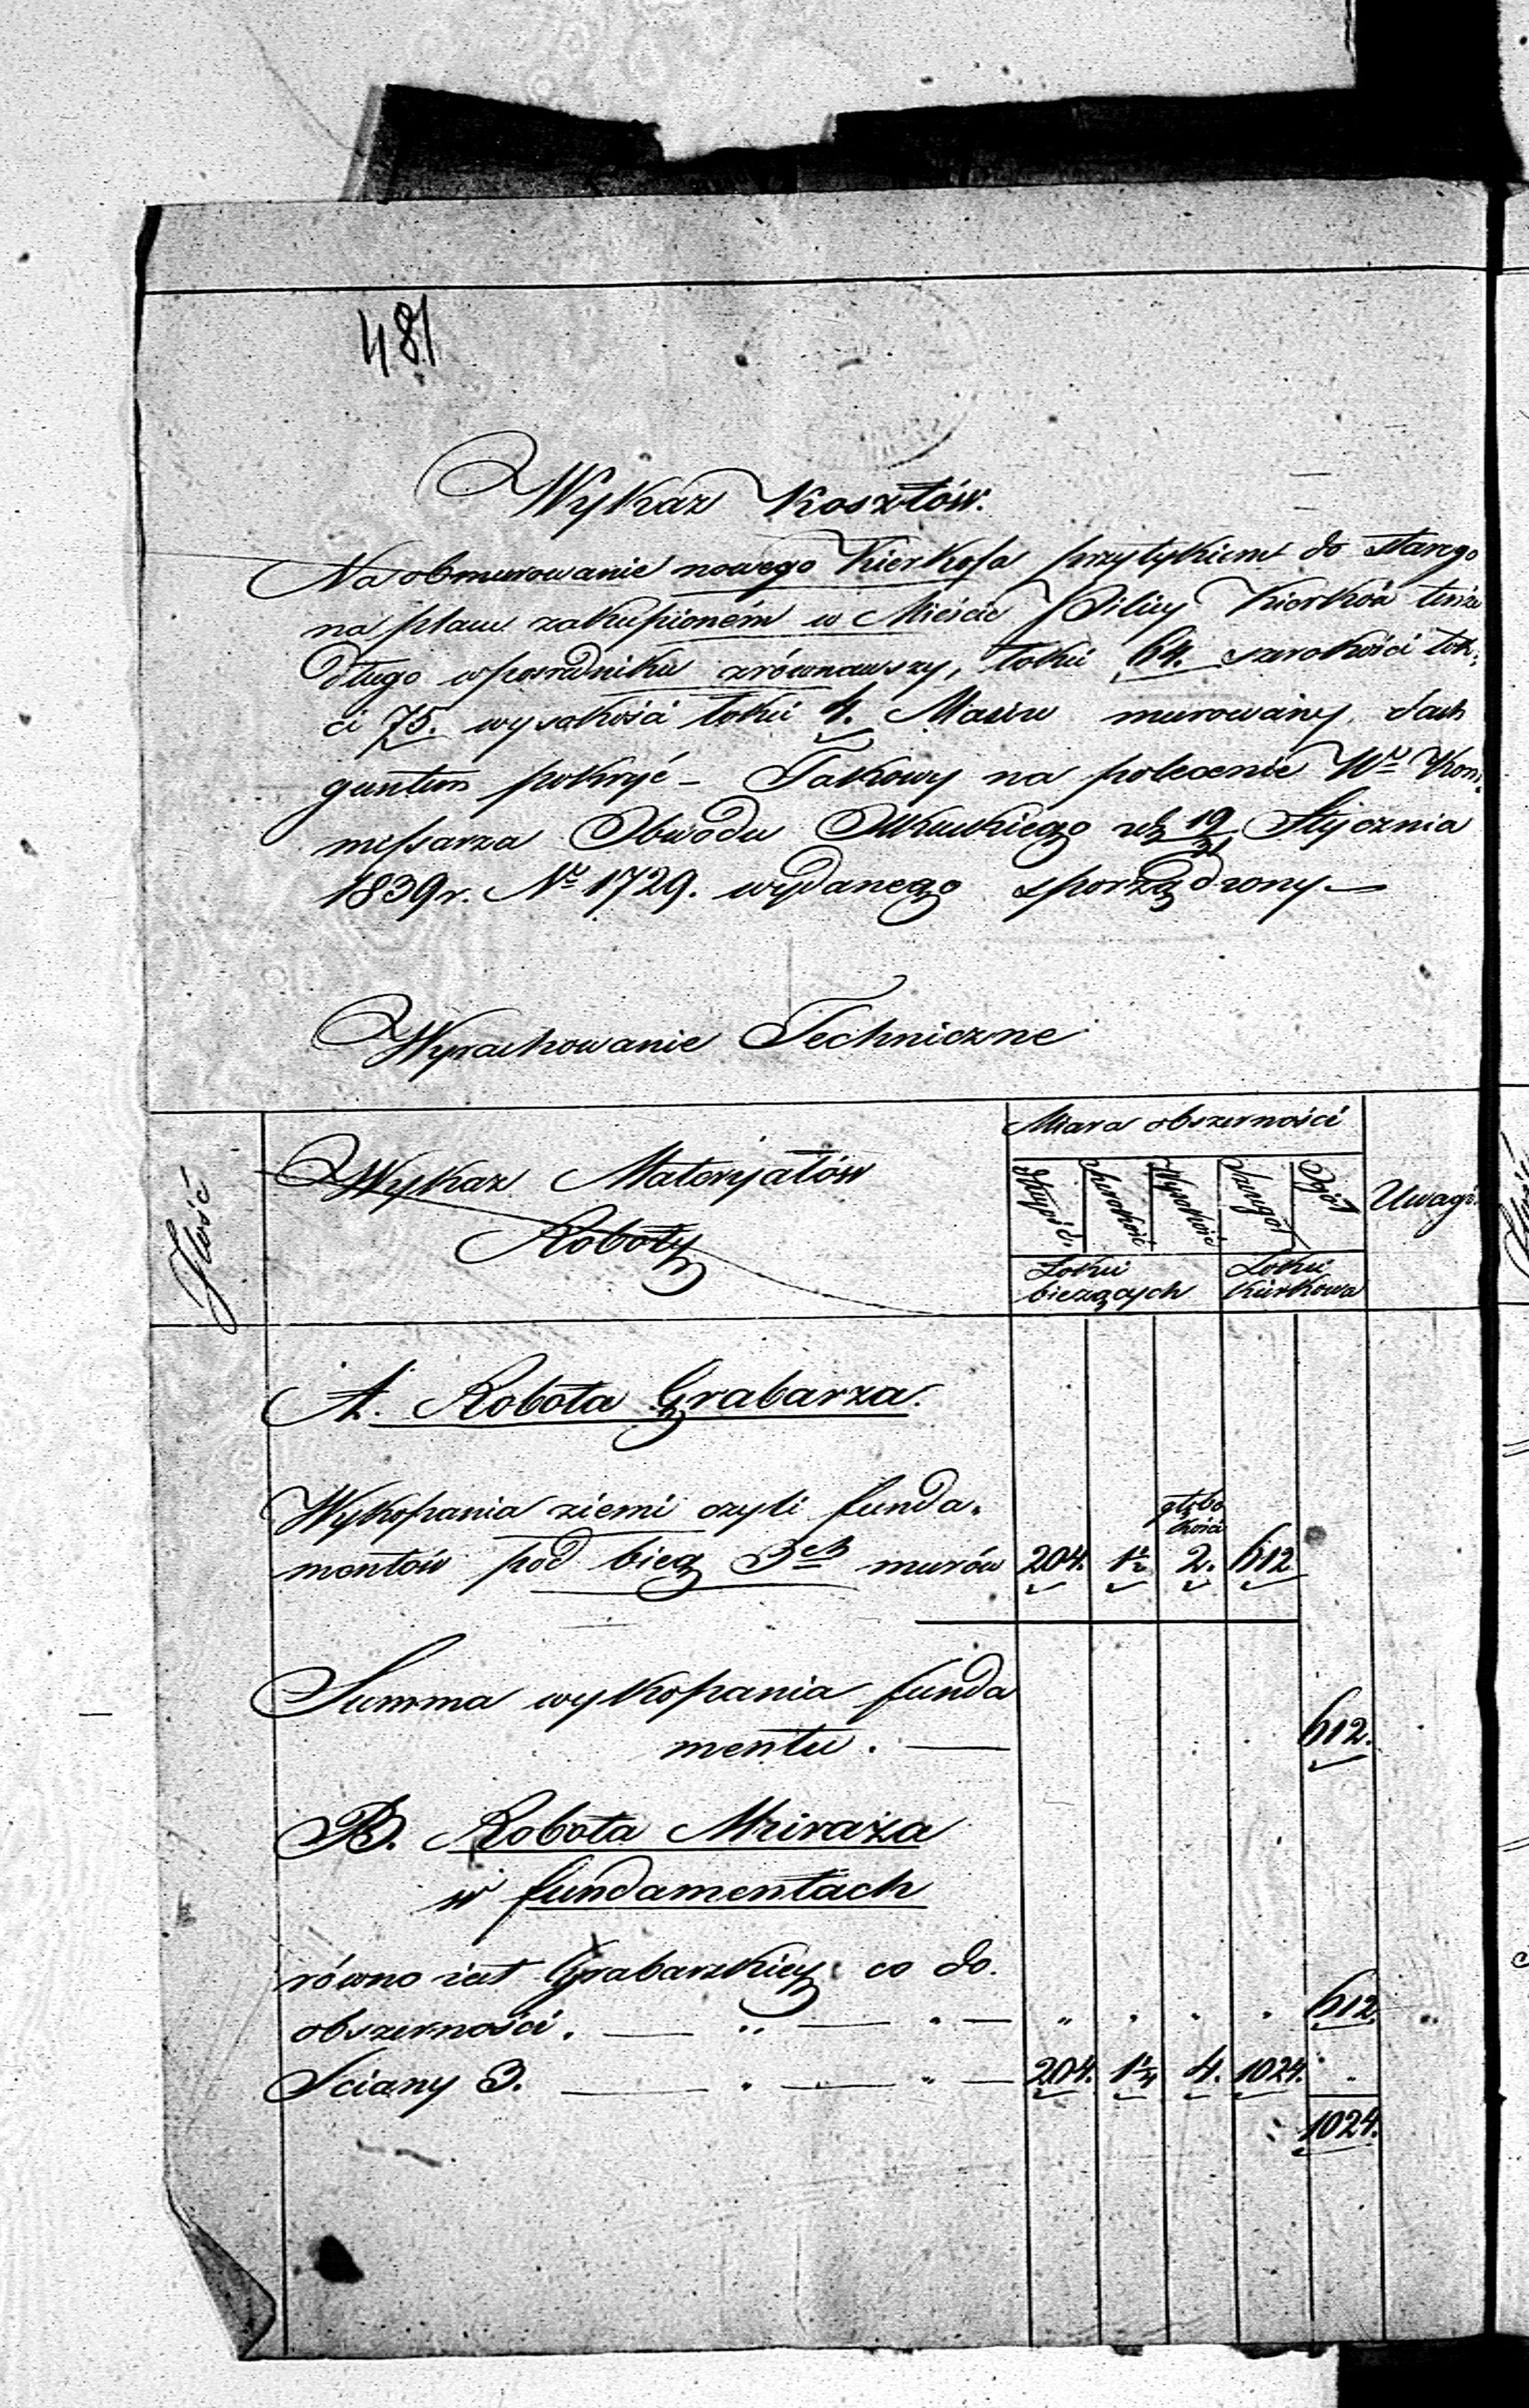 481
Wykaz Kosztów.
Na obmurowanie nowego Kierkofa przytykiem do starego
na placu zakupioném w Mieście Pilicy Kierków
długo w pośrodniku zrównawszy, łokci 64. szerokości łok=
ci 75. wysokości łokci 4. murowany, dach
guntem pokryć – Takowy na polecenie Wo Kom=
missarza Obwodu Olkuskiego z d. 19/31 Stycznia
1839 r. No 1729. wydanego sporządzony. —
Wyrachowanie Techniczne
Ilość
Wykaz Materyałów
Roboty
Miara obszerności
Szerokość Wysokość Szczegół Ogół
Uwagi
Łokci bieżących
Łokci Kubikowa
A. Robota Grabarza.
Wykopania ziemi czyli funda=
mentów pod bieg 3ch murów 204. 1 1/2 głębokości 2. 612
Summa wykopania funda
mentu. — 612.
B. Robota Mularza
w fundamentach
równo iest Grabarskiey co do
obszerności. — " — " — " " " " 612
Sciany 3. — " — " — 204. 1 1/4 4. 1024. "
1024.